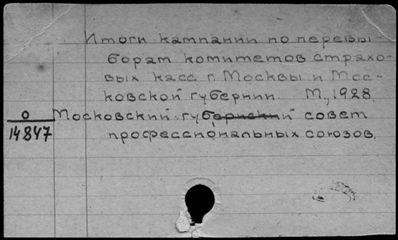 Итоги кампании по перевы
борам комитетов страхо-
вых касс г. Москвы и Мос-
ковской губернии М., 1928.
О Московский губернский совет
14847 профессиональных союзов.